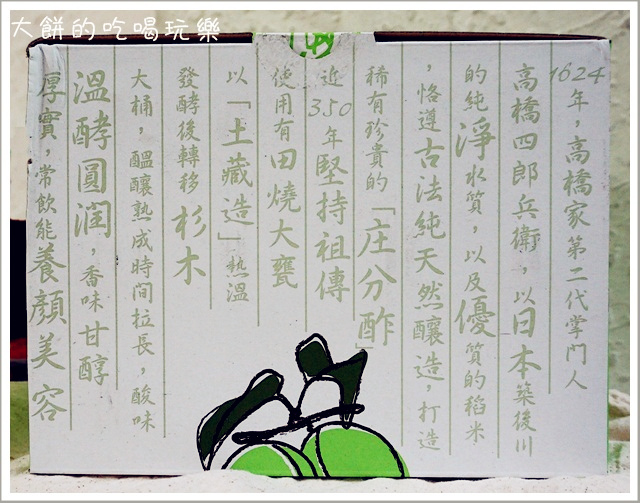 大餅的吃喝玩樂
1624年，高橋家第二代掌門人
高橋四郎兵衛，以日本築後川
的純淨水質，以及優質的稻米
，恪遵古法純天然釀造，打造
稀有珍貴的「庄分酢」
近350年堅持祖傳
使用有田燒大甕
以「土藏造」熱溫
發酵後轉移杉木
大桶，醞釀熟成時間拉長，酸味
溫酵圓潤，香味甘醇
厚實，常飲能養顏美容